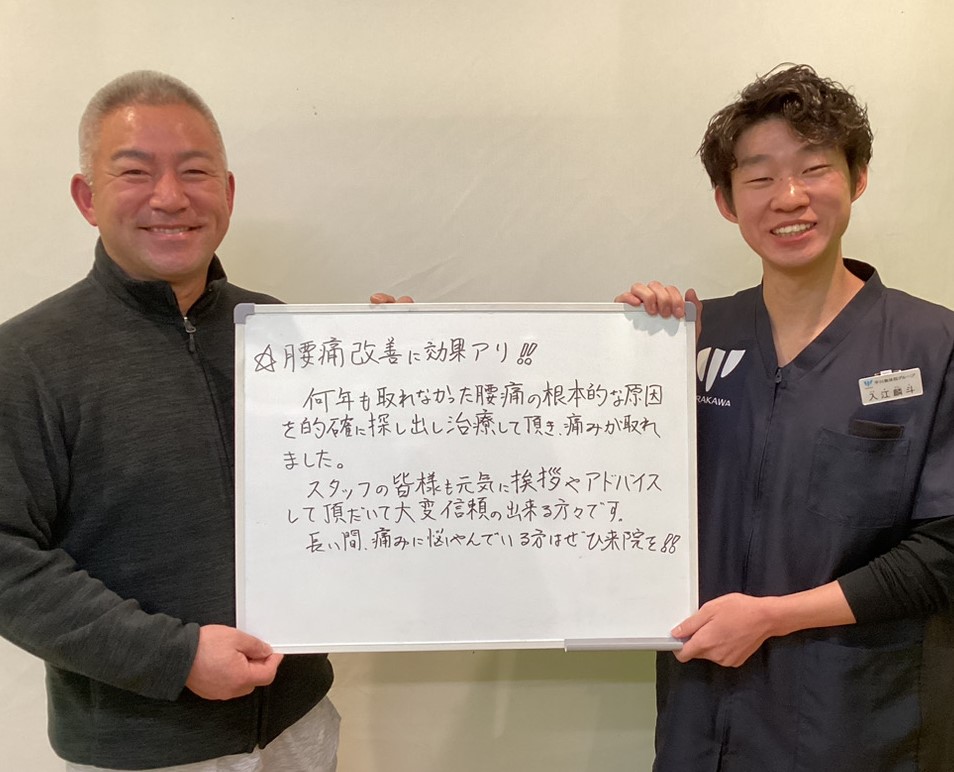 ☆腰痛改善に効果アリ!!
何年も取れなかった腰痛の根本的な原因
を的確に探し出し治療して頂き、痛みが取れ
ました。
スタッフの皆様も元気に挨拶やアドバイス
して頂だいて大変信頼の出来る方々です。
長い間、痛みに悩やんでいる方はぜひ来院を!!
RAKAWA
入江麟斗